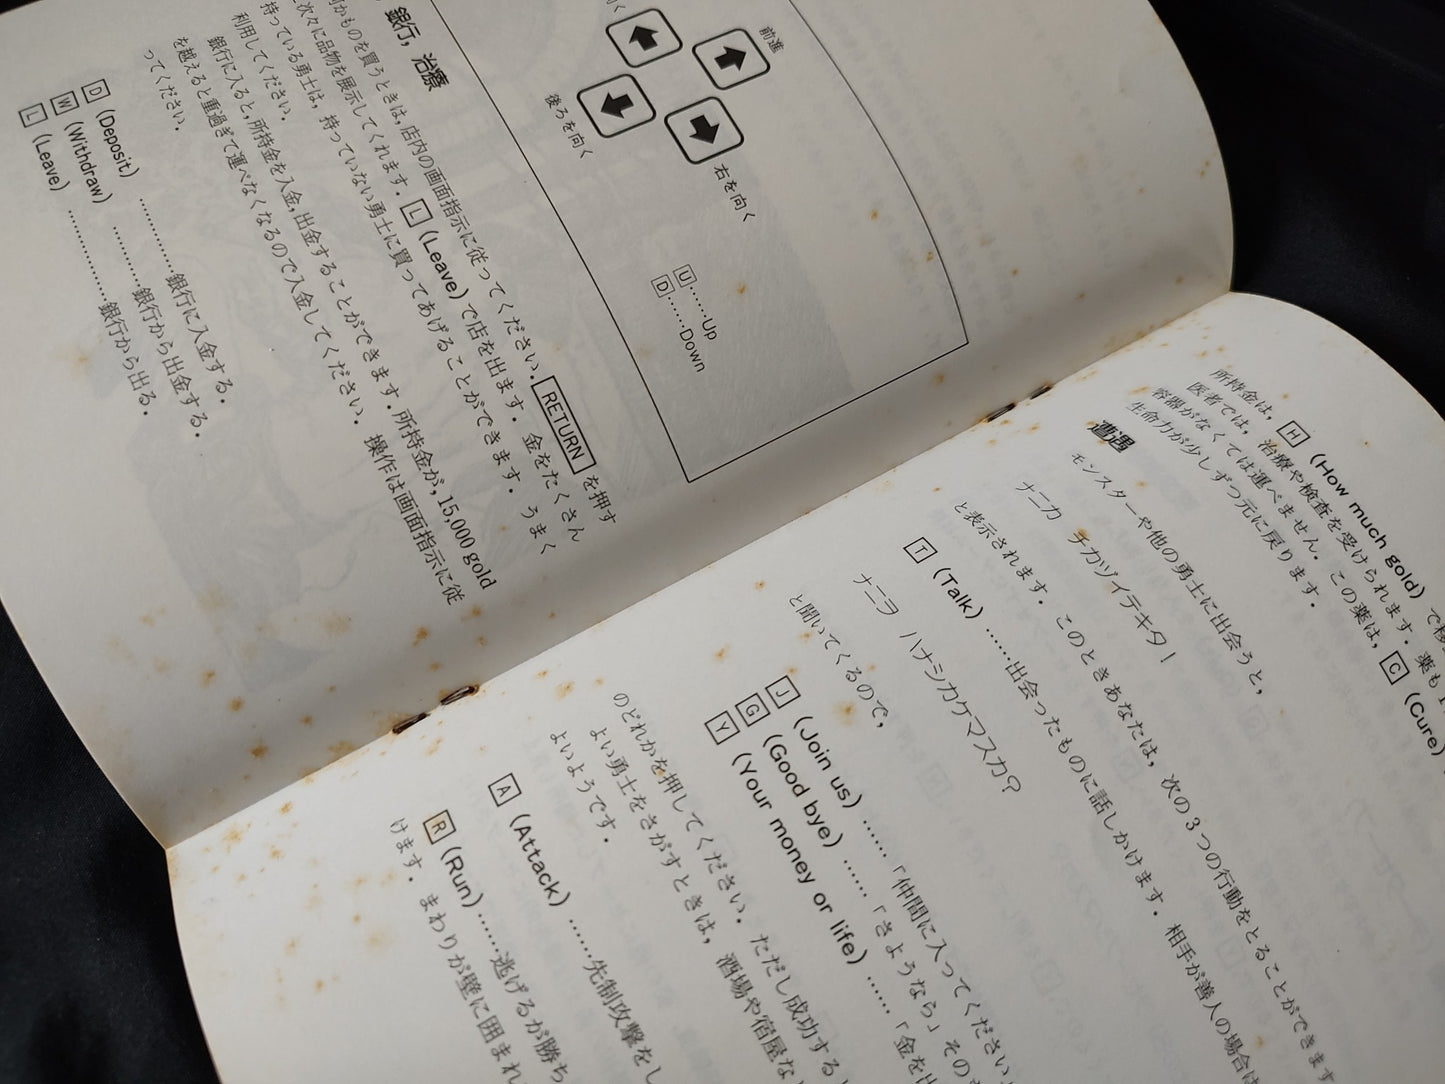 前進
右を向く
後ろを向く
U……Up
D……Down
銀行，治療
ものを買うときは，店内の画面指示に従ってください．RETURNを押す
次々に品物を展示してくれます．L(Leave)で店を出ます．金をたくさん
持っている勇士は，持っていない勇士に買ってあげることができます．うまく
利用してください．
銀行に入ると，所持金を入金，出金することができます．所持金が，15,000 gold
を越えると重過ぎて運べなくなるので入金してください．操作は画面指示に従
ってください．
D (Deposit) …………銀行に入金する．
W (Withdraw) …………銀行から出金する．
L (Leave) ………………銀行から出る．
所持金は，H (How much gold) で
医者では，治療や検査を受けられます．薬も
容器がなくては運べません．この薬は，C (Cure)
生命力が少しずつ元に戻ります．
遭遇
モンスターや他の勇士に出会うと，
ナニカ　チカヅイテキタ！
と表示されます．このときあなたは，次の3つの行動をとることができます
T (Talk) ……出会ったものに話しかけます．相手が善人の場合は
ナニヲ　ハナシカケマスカ？
と聞いてくるので，
J (Join us) ……「仲間に入ってください
G (Good bye) ……「さようなら」その
Y (Your money or life) ……「金を
のどれかを押してください．ただし成功する
よい勇士をさがすときは，酒場や宿屋な
よいようです．
A (Attack) ……先制攻撃をし
R (Run) ……逃げるが勝ち
けます．まわりが壁に囲まれ